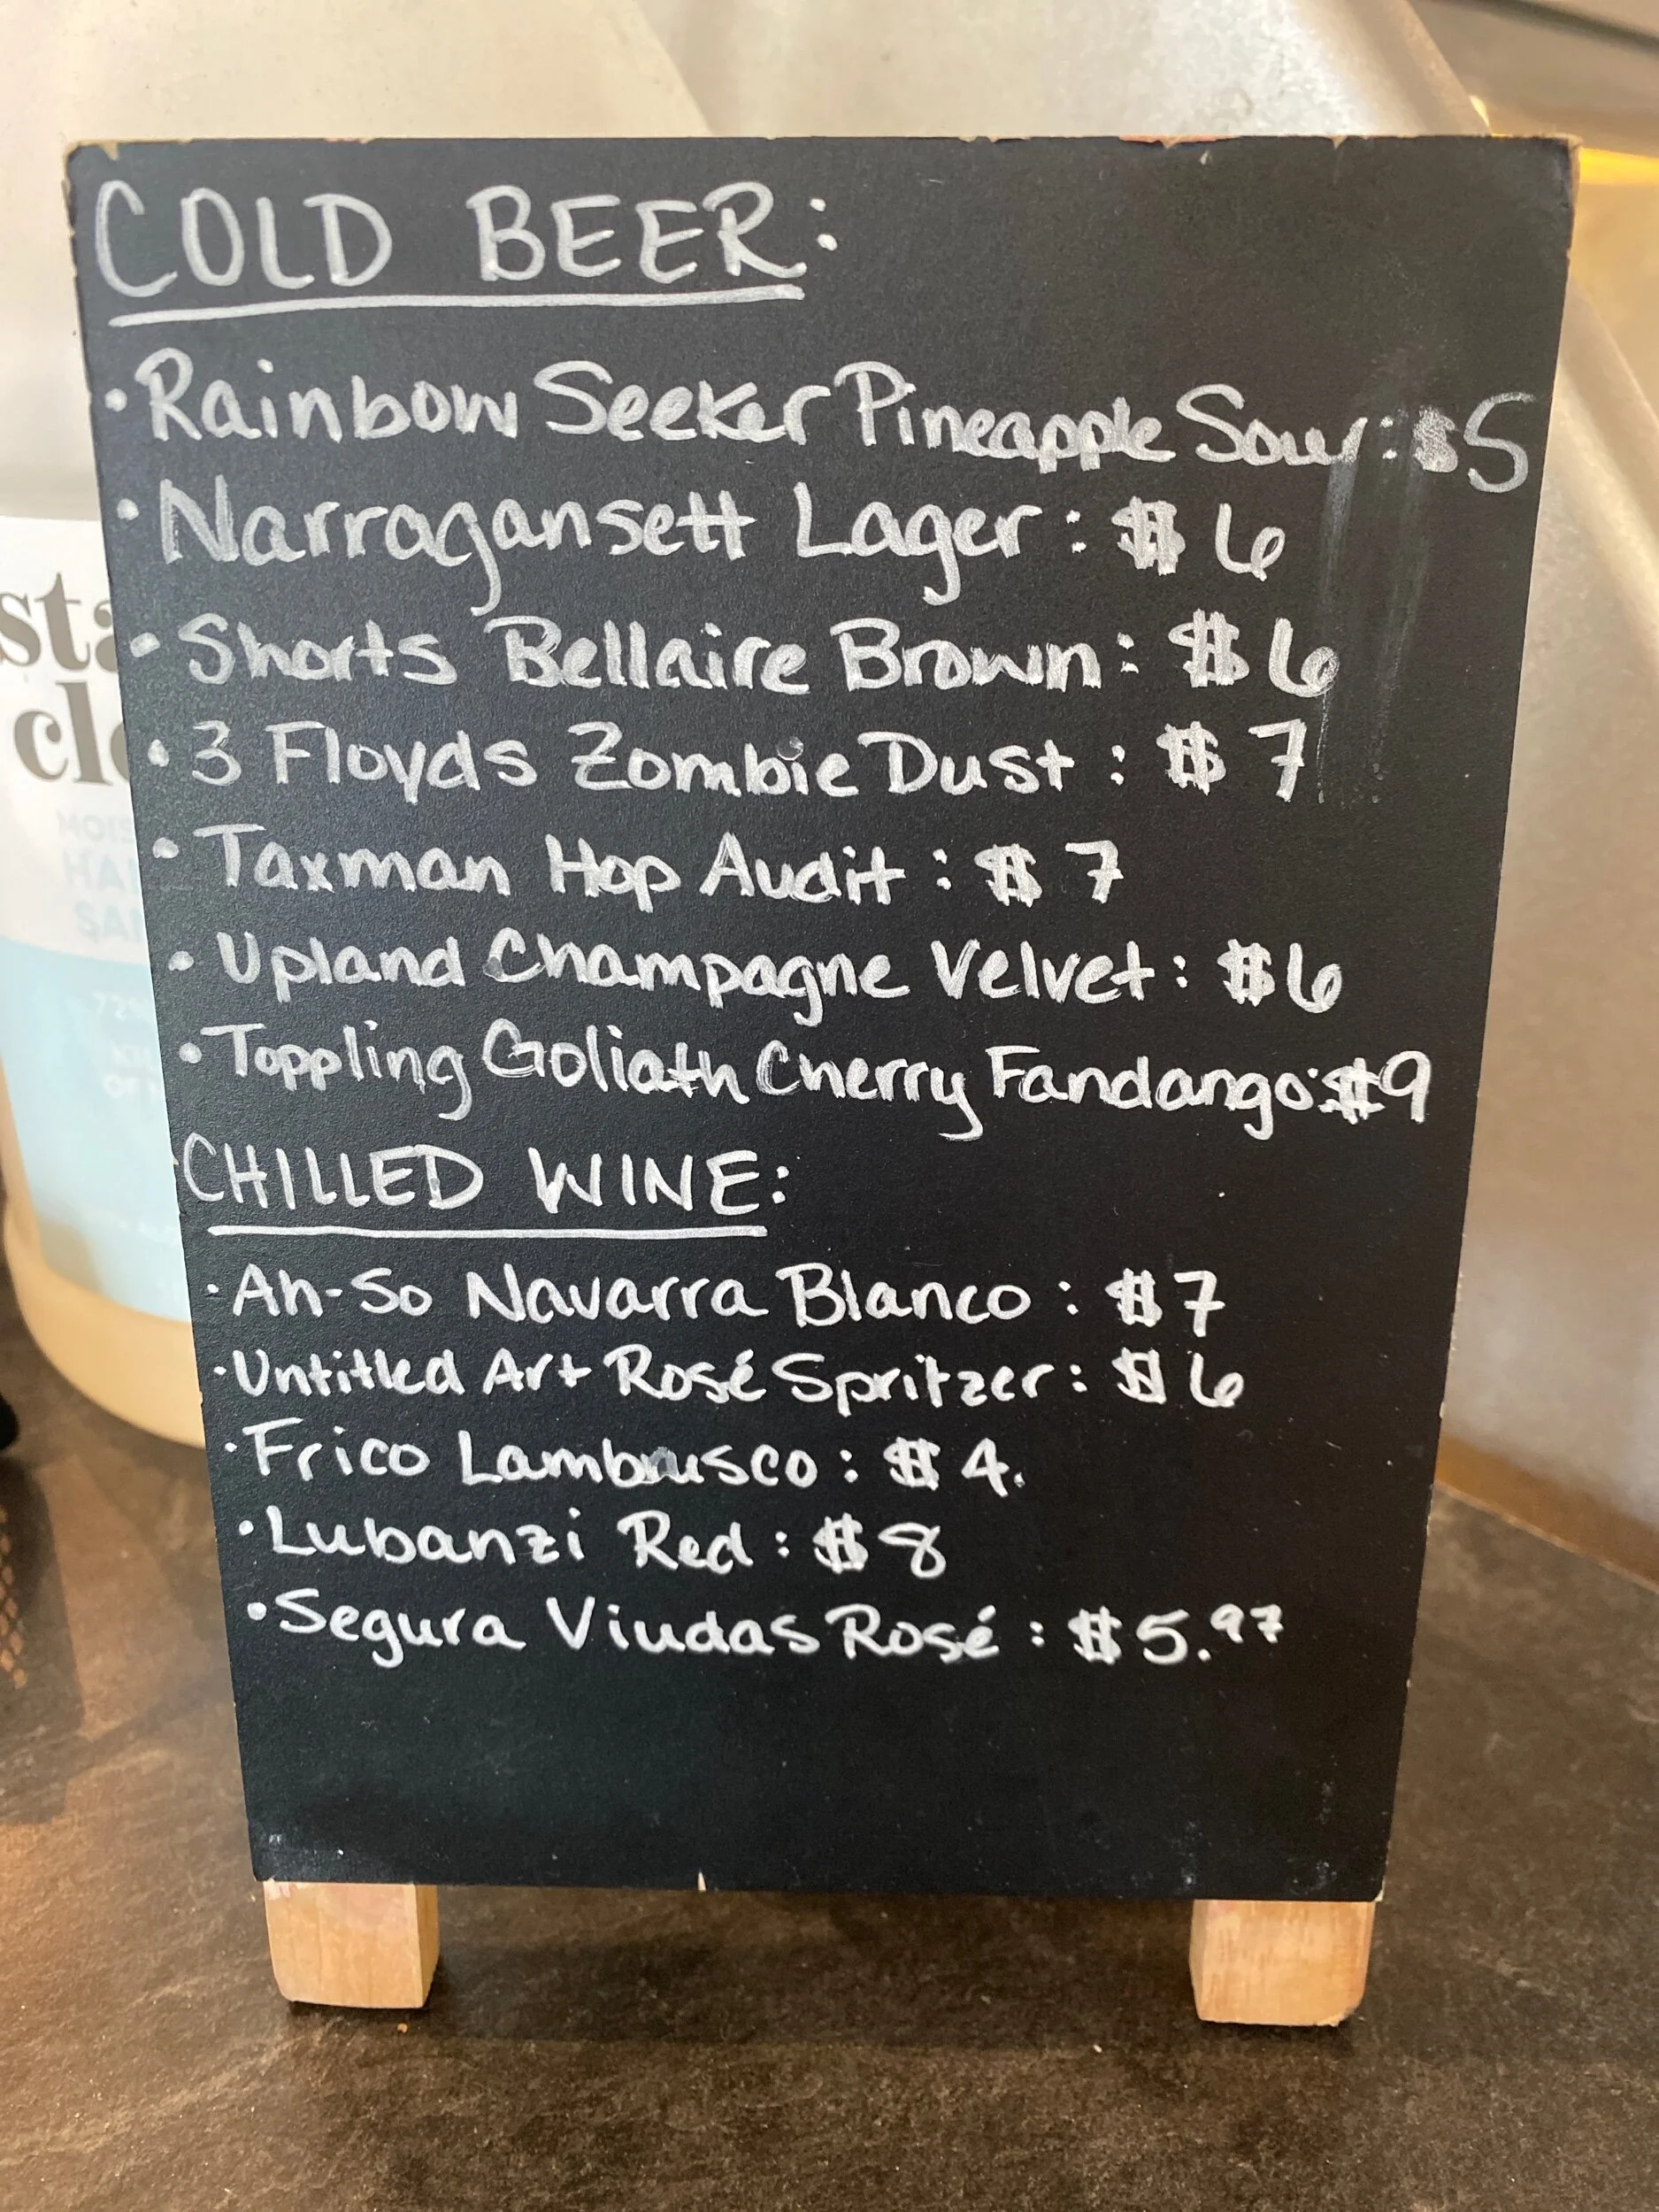 COLD BEER:
• Rainbow Seeker Pineapple Sour: $5
• Narragansett Lager: $6
• Shorts Bellaire Brown: $6
• 3 Floyds Zombie Dust: $7
• Taxman Hop Audit: $7
• Upland Champagne Velvet: $6
• Toppling Goliath Cherry Fandango: $9
CHILLED WINE:
• Ah-So Navarra Blanco: $7
• Untitled Art Rosé Spritzer: $6
• Frico Lambrusco: $4.
• Lubanzi Red: $8
• Segura Viudas Rosé: $5.97
sta
cle
MOIS
HAN
SAN
72%
KIL
OF